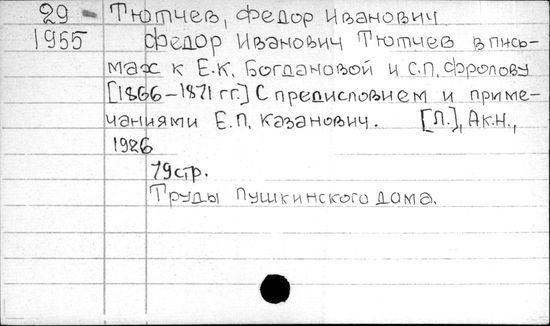 29 - Тютчев, Федор Иванович
1955 Федор Иванович Тютчев в пись-
мах к Е.К. Богдановой и С.П. Фролову
[1866-1871 гг.] С предисловием и приме-
чаниями Е.П. Казанович. [Л.], Ак.Н.,
1926
79 стр.
Труды Пушкинского дома.